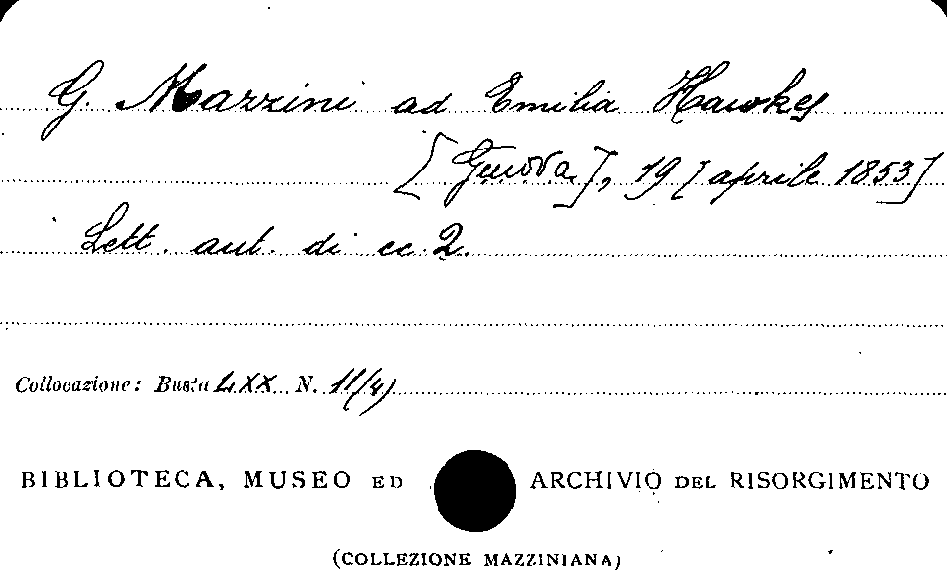 G. Mazzini ad Emilia Hawkes
[Genova], 19 [aprile 1853]
Lett. aut. di cc. 2.
Collocazione: Busta LXX N. 11/4)
BIBLIOTECA, MUSEO ED ARCHIVIO DEL RISORGIMENTO
(COLLEZIONE MAZZINIANA)